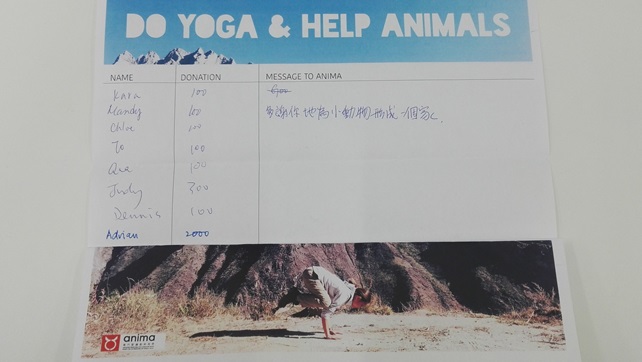 DO YOGA & HELP ANIMALS
NAME DONATION MESSAGE TO ANIMA
Kara 100
Mandy 100 多謝你地為小動物形成一個家
Chloe 100
Jo 100
100
Judy 300
Dennis 100
Adrian 2000
anima